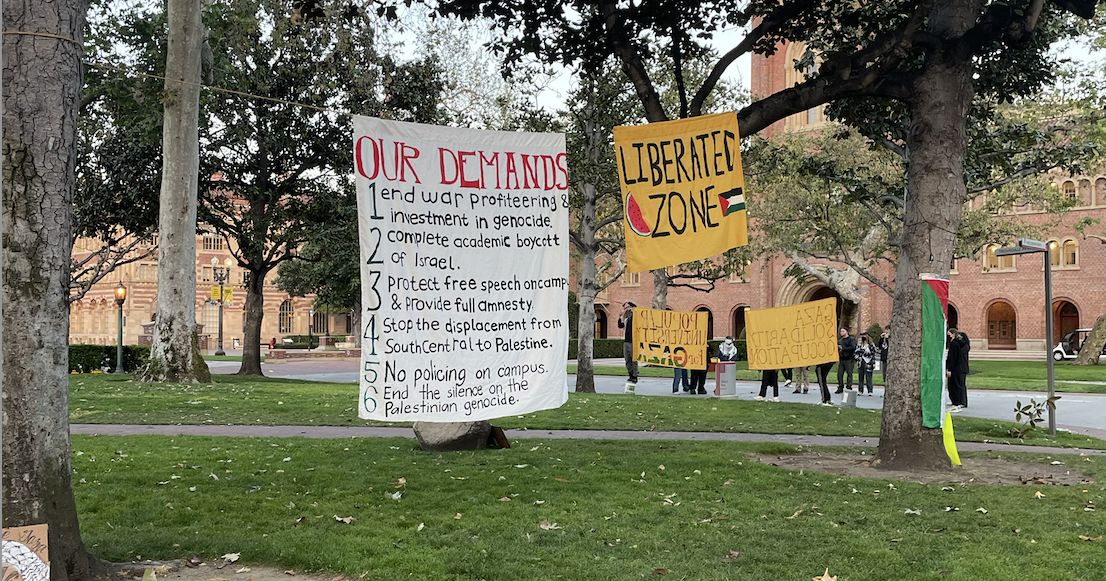 OUR DEMANDS
1 end war profiteering &
investment in genocide.
2 complete academic boycott
of Israel.
3 Protect free speech on campus
& provide full amnesty.
4 Stop the displacement from
South Central to Palestine.
5 No policing on campus.
6 End the silence on the
Palestinian genocide.
LIBERATED
ZONE
POPULAR
UNIVERSITY
For GAZA
GAZA
SOLIDARITY
OCCUPATION